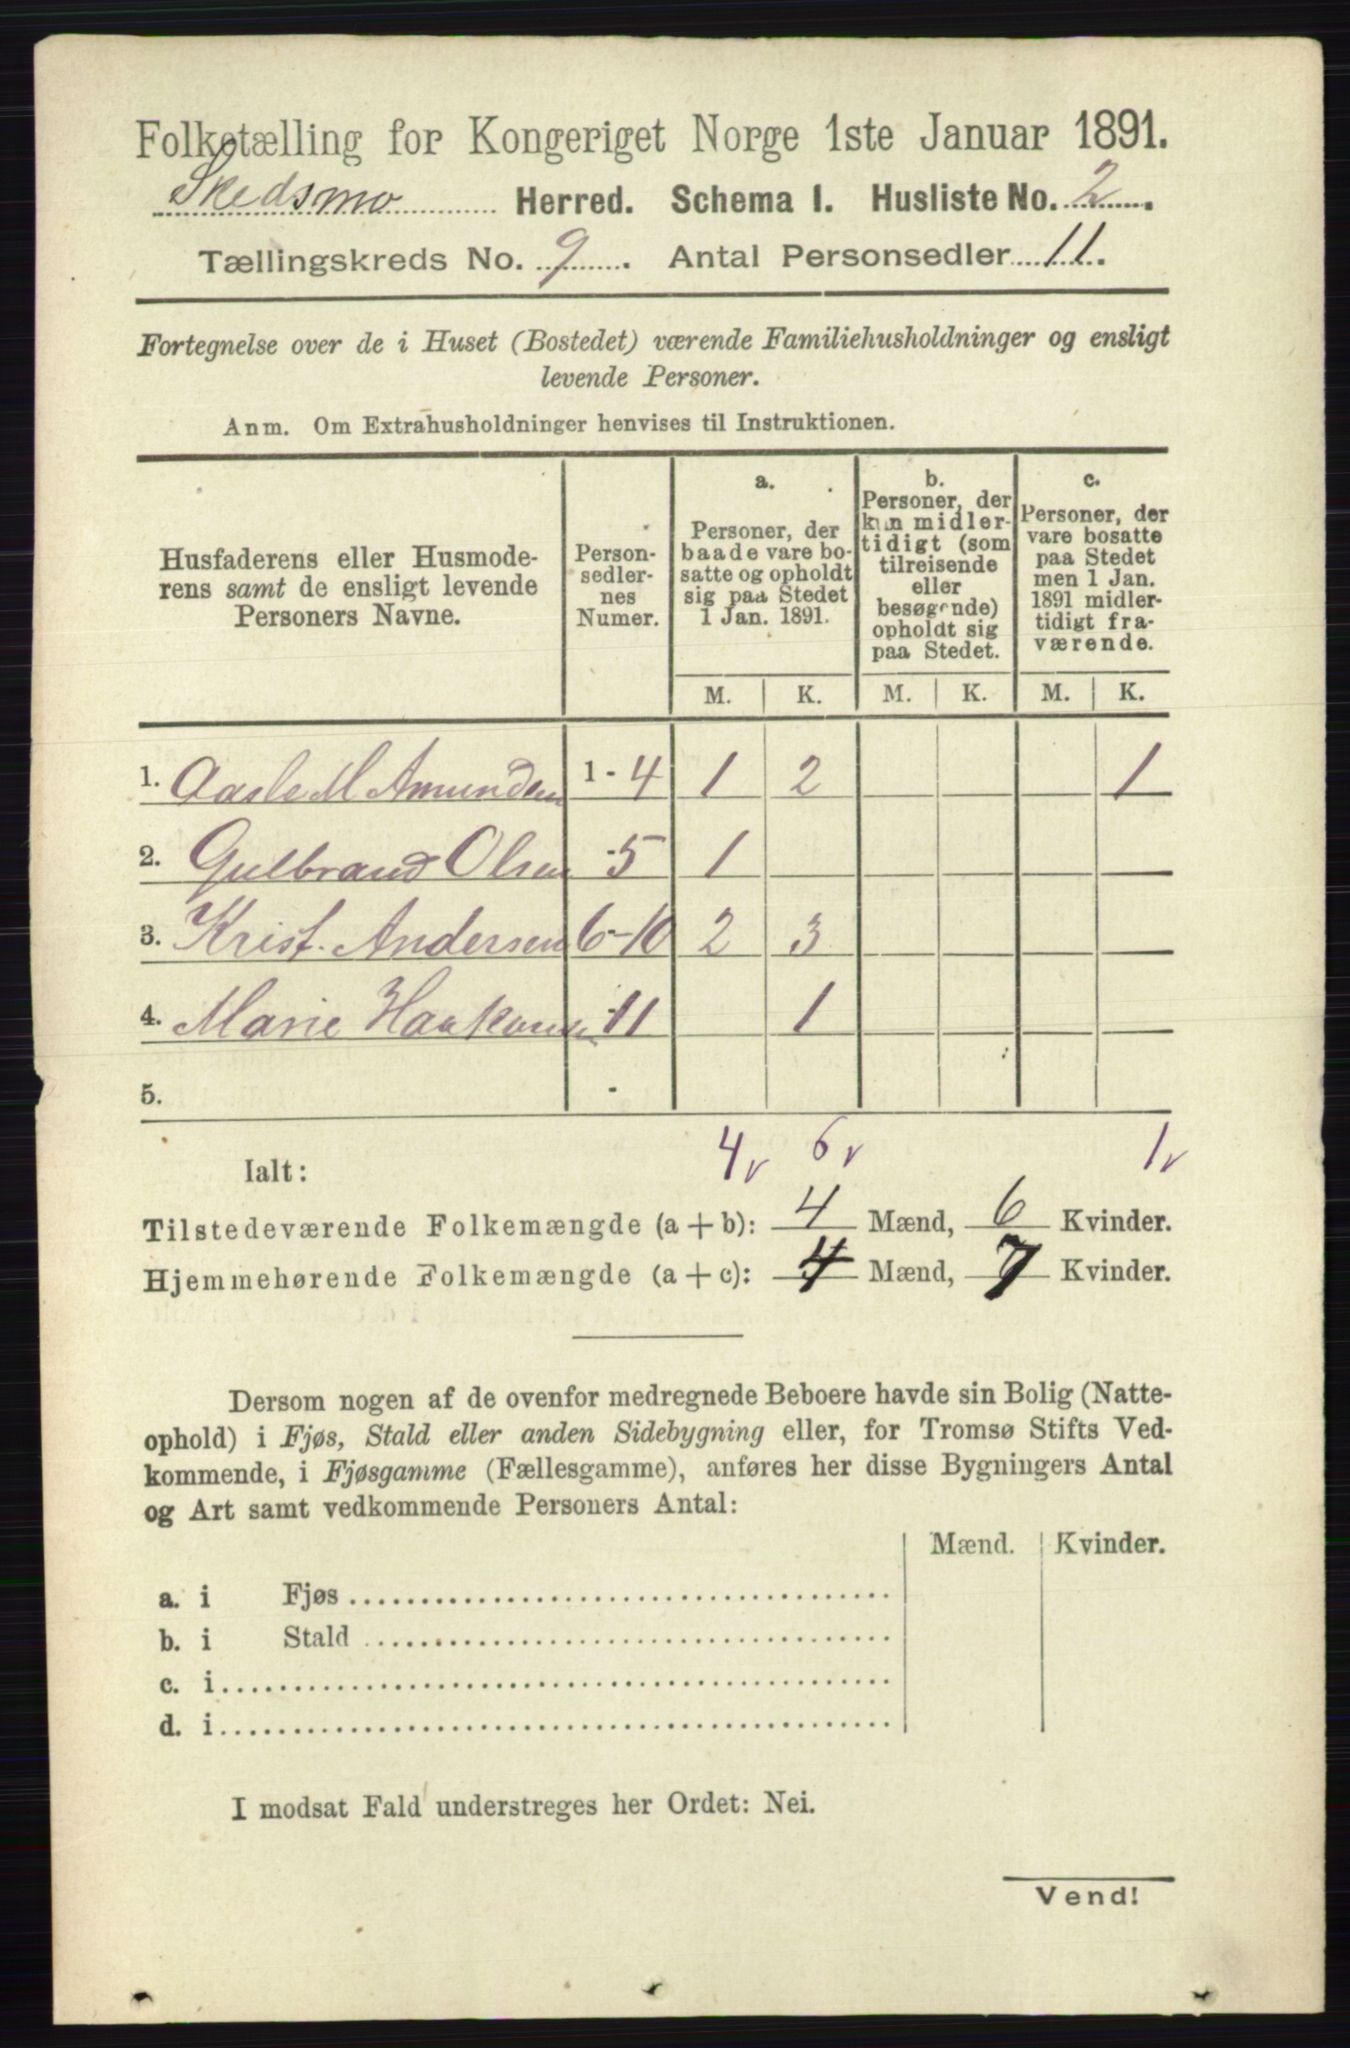 Folketælling for Kongeriget Norge 1ste Januar 1891.
Skedsmo Herred. Schema I. Husliste No. 2.
Tællingskreds No. 9. Antal Personsedler 11.
Fortegnelse over de i Huset (Bostedet) værende Familiehusholdninger og ensligt
levende Personer.
Anm. Om Extrahusholdninger henvises til Instruktionen.
Husfaderens eller Husmode-
rens samt de ensligt levende
Personers Navne.
Person-
sedler-
nes
Numer.
a.
Personer, der
baade vare bo-
satte og opholdt
sig paa Stedet
1 Jan. 1891.
b.
Personer, der
kun midler-
tidigt (som
tilreisende
eller
besøgende)
opholdt sig
paa Stedet.
c.
Personer, der
vare bosatte
paa Stedet
men 1 Jan.
1891 midler-
tidigt fra-
værende.
M. K. M. K. M. K.
1. Aasle M Amundsen 1-4 1 2 1
2. Gulbrand Olsen -5 1
3. Krist. Andersen 6-10 2 3
4. Marie Haakonsen -11 1
5. -
Ialt: 4 6 1
Tilstedeværende Folkemængde (a + b): 4 Mænd, 6 Kvinder.
Hjemmehørende Folkemængde (a + c): 4 Mænd, 7 Kvinder.
Dersom nogen af de ovenfor medregnede Beboere havde sin Bolig (Natte-
ophold) i Fjøs, Stald eller anden Sidebygning eller, for Tromsø Stifts Ved-
kommende, i Fjøsgamme (Fællesgamme), anføres her disse Bygningers Antal
og Art samt vedkommende Personers Antal:
Mænd. Kvinder.
a. i Fjøs
b. i Stald
c. i
d. i
I modsat Fald understreges her Ordet: Nei.
Vend!